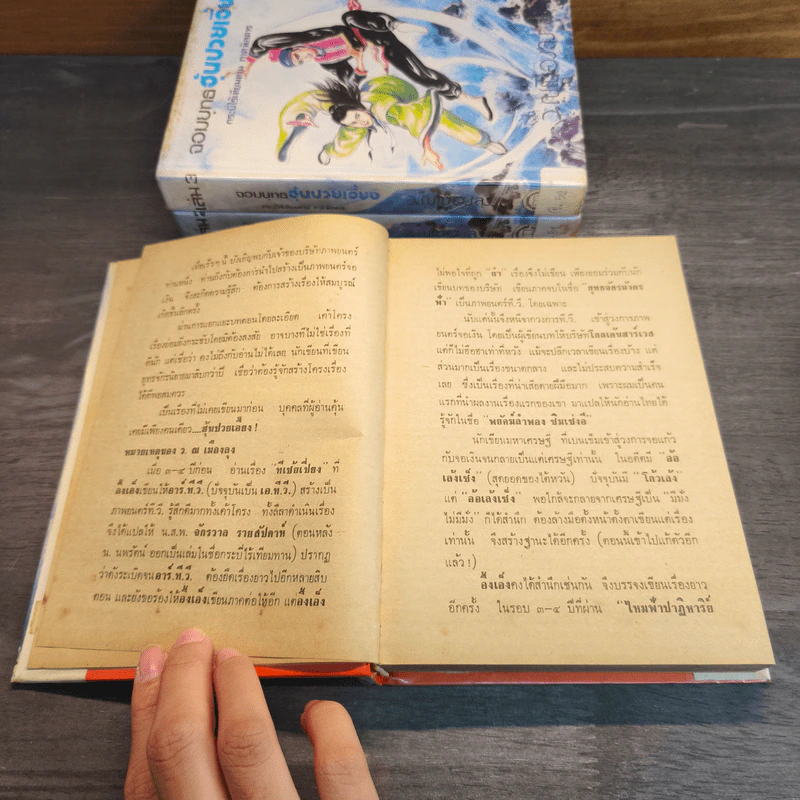 จอมยุทธฮุ่นปวยเอี๊ยง
กระบี่ไร้เทียมทาน ภาคพิสดาร
จอมยุทธฮุ่นปวยเอี๊ยง
เล่ม 3
เมื่อเร็วๆ นี้ บังเอิญพบกับเจ้าของบริษัทภาพยนตร์
ท่านหนึ่ง ท่านถึงกับต้องการนำไปสร้างเป็นภาพยนตร์จอ
เงิน จึงสะกิดความรู้สึก ต้องการสร้างเรื่องให้สมบูรณ์
เกิดขึ้นอีกครั้ง
ผ่านการแยกแยะบทตอนโดยละเอียด เค้าโครง
เรื่องย่อมยิ่งกระชับโดยมิต้องสงสัย อาจบางทีไม่ใช่เรื่องที่
ดีนัก แต่เชื่อว่า คงไม่ถึงกับอ่านไม่ได้เลย นักเขียนที่เขียน
ยุทธจักรนิยายมาสิบกว่าปี เชื่อว่าต้องรู้จักสร้างโครงเรื่อง
ได้ดีพอสมควร
เป็นเรื่องที่ไม่เคยเขียนมาก่อน บุคคลที่ผู้อ่านคุ้น
เคยมีเพียงคนเดียว....ฮุ่นปวยเอี๊ยง !
หมายเหตุของ ว. ณ เมืองลุง
เมื่อ ๓-๔ ปีก่อน อ่านเรื่อง "ทีเซ้อเปี่ยง" ที่
อึ้งเอ็งเขียนให้อาร์.ที.วี. (ปัจจุบันเป็น เอ.ที.วี.) สร้างเป็น
ภาพยนตร์ที.วี. รู้สึกดีมากทั้งเค้าโครง ทั้งลีลาดำเนินเรื่อง
จึงได้แปลให้ น.ส.พ. จักรวาล รายสัปดาห์ (ตอนหลัง
น. นพรัตน์ ออกเป็นเล่มในชื่อกระบี่ไร้เทียมทาน) ปรากฏ
ว่าดังระเบิดจนอาร์.ที.วี. ต้องยืดเรื่องยาวไปอีกหลายสิบ
ตอน และยังขอร้องให้อึ้งเอ็งเขียนภาคต่อให้อีก แต่อึ้งเอ็ง
ไม่พอใจที่ถูก "ล้ำ" เรื่องจึงไม่เขียน เพียงยอมร่วมกับนัก
เขียนบทของบริษัท เขียนภาคจบในชื่อ "ยุทธจักรมังกร
ฟ้า" เป็นภาพยนตร์ที.วี. โดยเฉพาะ
นับแต่นั้นจึงหน่ายจากวงการที.วี. เข้าสู่วงการภาพ
ยนตร์จอเงิน โดยเป็นผู้เขียนบทให้บริษัทโกลเด้นฮาร์เวส
แต่ก็ไม่ฮือฮาเท่าที่หวัง แม้จะปลีกเวลาเขียนเรื่องบ้าง แต่
ส่วนมากเป็นเรื่องขนาดกลาง และไม่ประสบความสำเร็จ
เลย ซึ่งเป็นเรื่องที่น่าเสียดายฝีมือมาก เพราะผมเป็นคน
แรกที่นำผลงานเรื่องแรกของเขา มาแปลให้นักอ่านไทยได้
รู้จักในชื่อ "พยัคฆ์ลำพอง ซิมเซ่งอี"
นักเขียนมหาเศรษฐี ที่เบนเข็มเข้าสู่วงการจอแก้ว
กับจอเงินจนกลายเป็นแค่เศรษฐีเท่านั้น ในอดีตมี "อ้อ
เล้งเซ็ง" (สุดยอดของไต้หวัน) ปัจจุบันมี "โกวเล้ง"
แต่ "อ้อเล้งเซ็ง" พอใกล้จะกลายจากเศรษฐีเป็น "มีมั่ง
ไม่มีมั่ง" ก็ได้สำนึก ต้องล้างมือตั้งหน้าตั้งตาเขียนแต่เรื่อง
เท่านั้น จึงสร้างฐานะได้อีกครั้ง (ตอนนี้เข้าไปแก้ตัวอีก
แล้ว !)
อึ้งเอ็งคงได้สำนึกเช่นกัน จึงบรรจงเขียนเรื่องยาว
อีกครั้ง ในรอบ ๓-๔ ปีที่ผ่าน "ไหมฟ้าปาฏิหาริย์